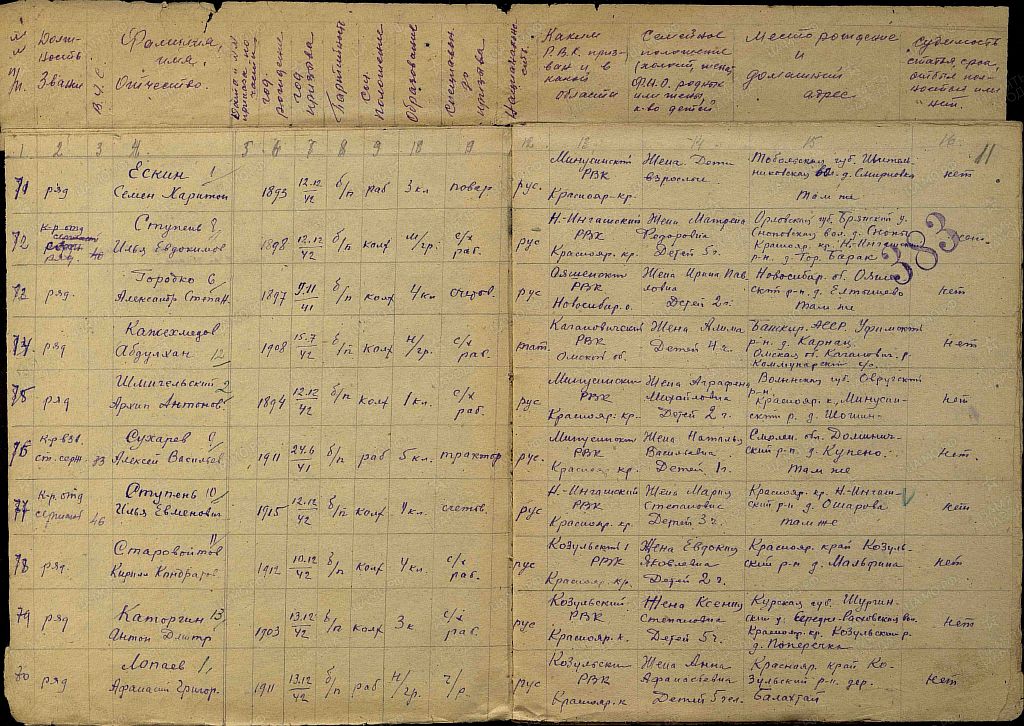 №№ п/п.
Долж- ность. Звание
В.У.С.
Фамилия, имя, Отчество.
год рождения
год призыва
Партийность
Соц. положение
Образование
специальн. до призыва
Национальность.
Каким Р.В.К. приз- ван и в какой области
Семейное положение (холост, женат) Ф.И.О. родных или жены, к-во детей
Место рождения и домашний адрес
Судимость статья, срок, отбыл пол- ностью или нет.
1. 2 3 4. 5 6 7 8 9 10 9 12 13 14 15 16. 11
Ескин 1 Минусинский Жена. Дети Тобольская губ.
71 ряд Семен Харитон 1893 12.12/42 б/п раб 3 кл повар рус. РВК взрослые. д. Смирновка нет
Красноярск-кр. там же
К-р отд Ступень 8 Н.-Ингашский Жена Матрена Орловская губ. Брянский д.
72 ряд. 40 Илья Евдокимов 1898 12.12/42 б/п колх м/гр. с/х раб. рус РВК Федоровна вол.
Краснояр. кр. Детей 5ч Краснояр. кр. Н.-Ингашский
р-н. д. Гор. Барак
383
Городко 6 Жена Ирина Пав Новосибир. об.
73 ряд. Александр Степан. 1897 9.11/41 б/п колх 4 кл счетов. рус РВК ловна ский р-н. д. Елтышево нет
Новосибир. о. Детей 2 ч. там же
Кажехмедов Кагановичский Жена Алима Башкир. АССР. Уфимский
74 ряд Абдулхан 12 1908 15.7/42 б/п колх н/гр. с/х раб. тат. РВК Детей 4 ч. р-н. д. нет
Омской об. Омская об. Каганович. р.
Коммунарский с/с.
Шмигельский 2 Минусински Жена Аграфена Волынская губ. Овручский
75 ряд Архип Антонов 1894 12.12/42 б/п колх 1 кл. с/х раб. рус РВК Михайловна р-н. Краснояр. к, Минусин- нет
Краснояр. кр. Детей 2 ч. ский р. д.
К-р взв. Сухарев 9 Минусинский Жена Наталья Смолен. обл.
76 ст. серж. 33 Алексей Васильев 1911 24.6/41 б/п раб 5 кл. трактор рус. РВК Васильевна ский р-н д. Нет.
Краснояр кр. Детей 1 ч. там же
К-р отд Ступень 10 Н-Ингашский Жена Мария Краснояр. кр. Н.-Ингаш-
77 сержант 46 Илья Евменович 1915 12.12/42 б/п колх 4 кл. счетов. рус РВК Степановна ский р-н д. Ошарова нет
Краснояр. кр Детей 3 ч. там же
Старовойтов 11 Козульский Жена Евдокия Красноярс. край Козуль-
78 ряд. Кирилл 1912 10.12/42 б/п колх 4 кл. с/х раб. рус РВК Яковлевна ский р-н д. Мальфина нет
Краснояр. кр. Детей 2 ч.
Каторгин 13 Козульский. Жена Ксения Курская губ.
79 ряд Антон Дмитр 1903 13.12/42 б/п колх 3 к с/х раб. рус РВК Степановна нет
Краснояр. к. Детей 5 ч. Краснояр. кр. Козульский р
д. Поперечка
Лопаев Козульски Жена Анна Краснояр. край Ко-
80 ряд Афанасий Григор. 1911 13.12/42 б/п раб н/гр. ч/р. рус РВК Афанасьевна зульский р-н. дер. нет
Краснояр. к Детей 5 чел. Балахтай